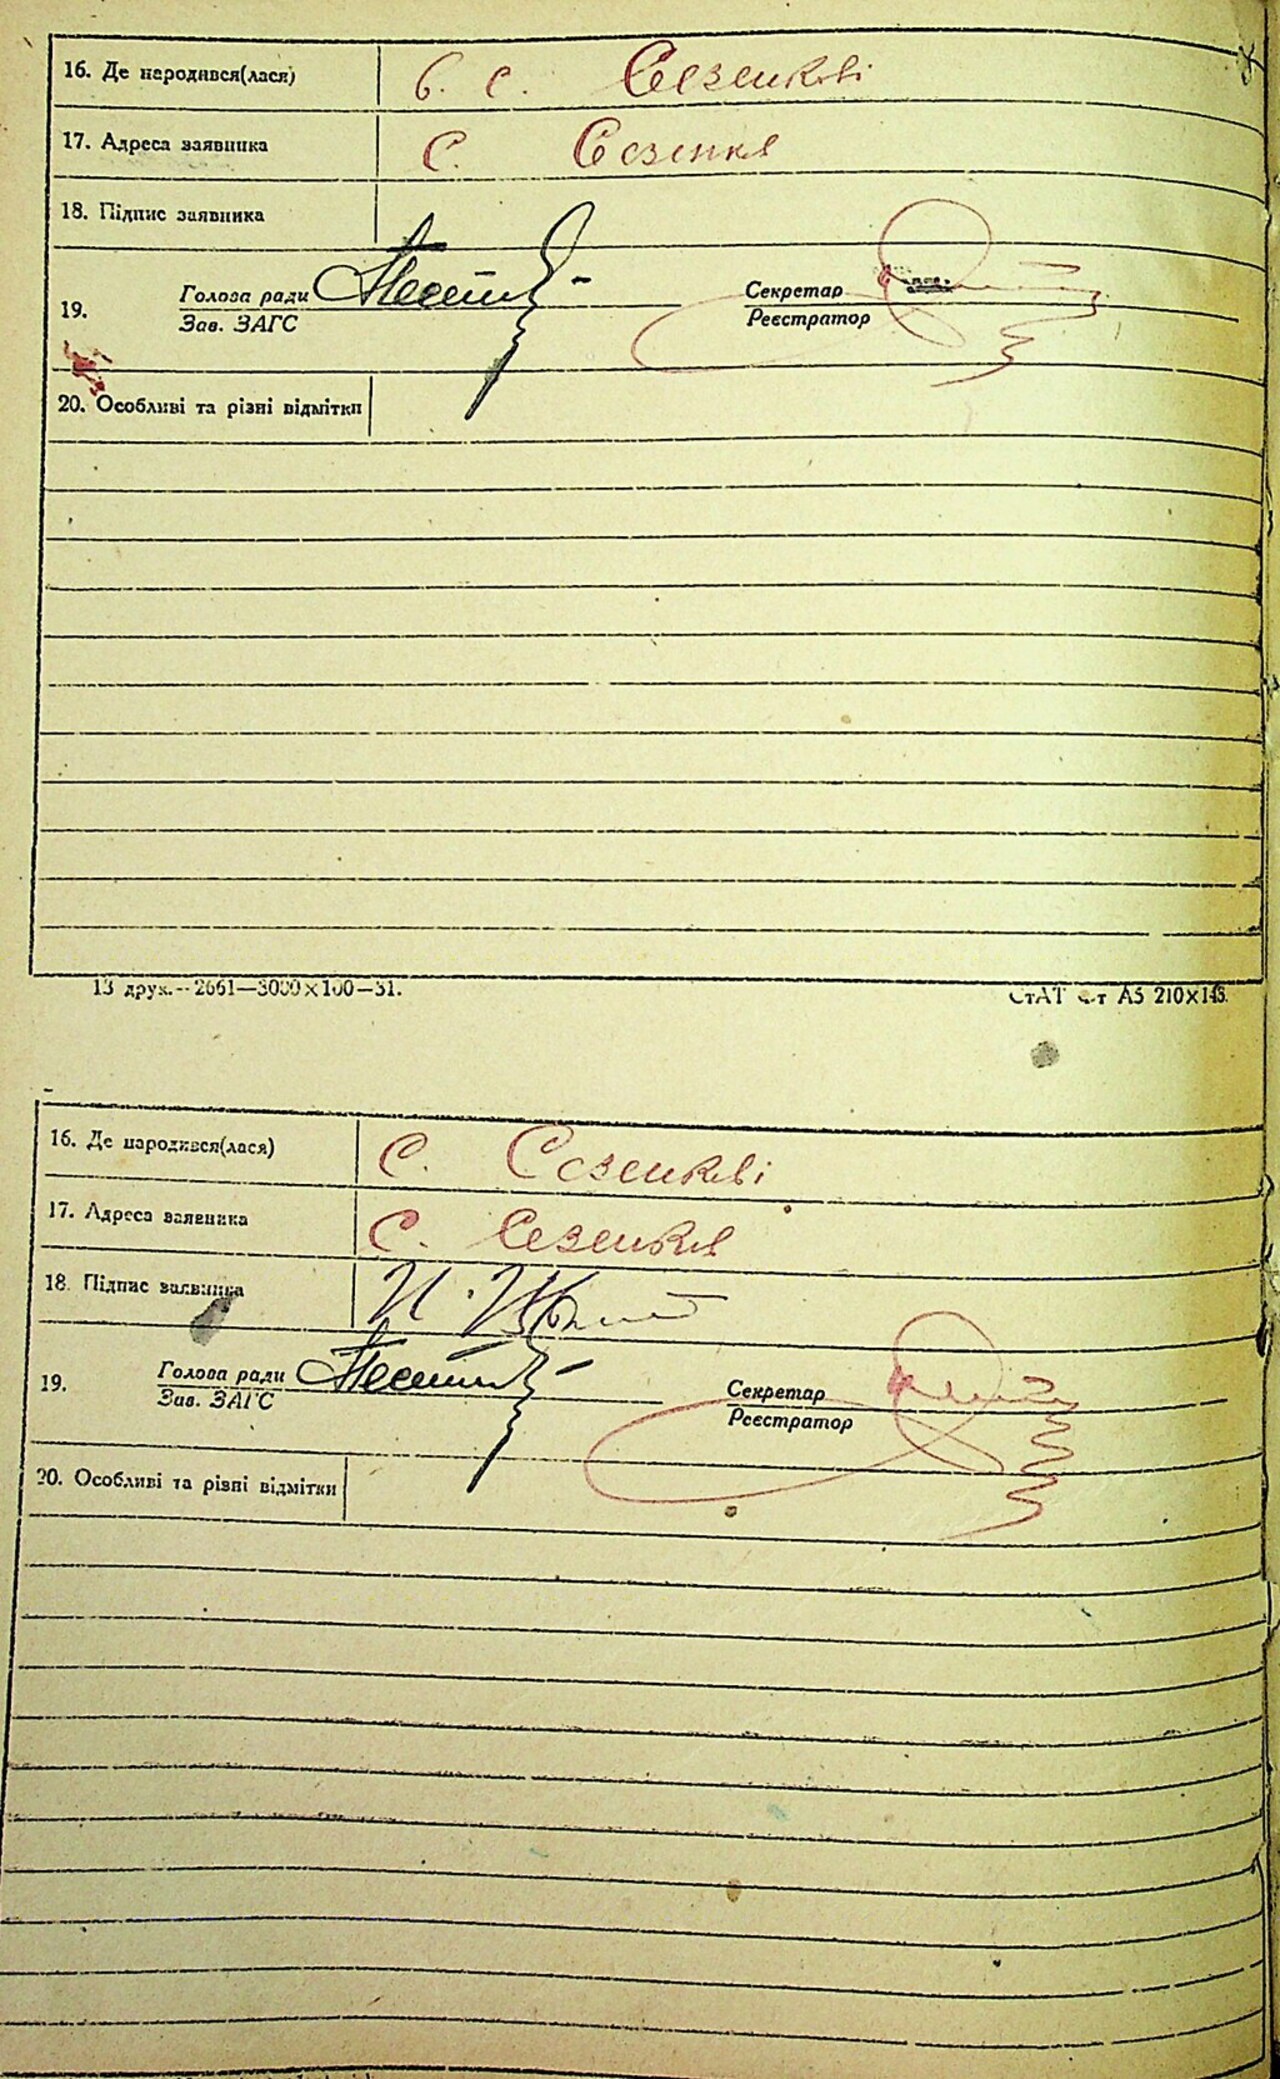 16. Де народився(лася) в. с. Сезенкові
17. Адреса заявника с. Сезенків
18. Підпис заявника
19. Голова ради Секретар
Зав. ЗАГС Реєстратор
20. Особливі та різні відмітки
13 друк.—2661—3000×100—31. СтАТ Фт А5 210×148.
16. Де народився(лася) с. Сезенкові
17. Адреса заявника с. Сезенків
18. Підпис заявника
19. Голова ради Секретар
Зав. ЗАГС Реєстратор
20. Особливі та різні відмітки